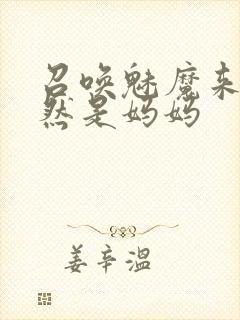 召唤魅魔来
然是妈妈
姜辛温